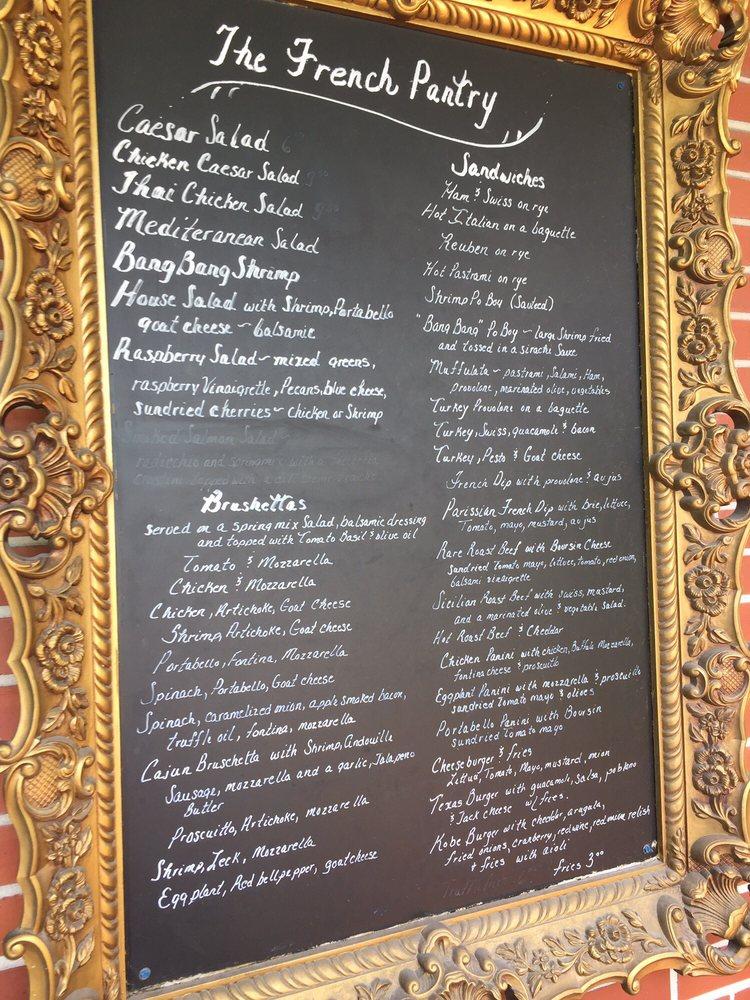 The French Pantry
Caesar Salad
Chicken Caesar Salad
Thai Chicken Salad
Mediteranean Salad
Bang Bang Shrimp
House Salad with Shrimp, Portabello
goat cheese ~ balsamic
Raspberry Salad ~ mixed greens,
raspberry Vinaigrette, Pecans, blue cheese,
sundried cherries ~ chicken or Shrimp
Smoked Salmon Salad
radicchio and springmix with a
Brushettas
served on a spring mix Salad, balsamic dressing
and topped with Tomato Basil & olive oil
Tomato & Mozzarella
Chicken & Mozzarella
Chicken, Artichoke, Goat Cheese
Shrimp, Artichoke, Goat cheese
Portabello, Fontina, Mozzarella
Spinach, Portabello, Goat cheese
Spinach, caramelized onion, apple smoked bacon,
truffle oil, fontina, mozzarella
Cajun Bruschetta with Shrimp, Andouille
Sausage, mozzarella and a garlic, Jalapeno
Butler
Proscuitto, Artichoke, mozzarella
Shrimp, Leek, Mozzarella
Eggplant, Red bell pepper, goat cheese
Sandwiches
Ham & Swiss on rye
Hot Italian on a baguette
Reuben on rye
Hot Pastrami on rye
Shrimp Po Boy (Sauteed)
"Bang Bang" Po Boy ~ large Shrimp fried
and tossed in a sirachi Sauce
Muffulata ~ pastrami, Salami, Ham,
provolone, marinated olive, vegetables
Turkey Provolone on a baguette
Turkey, Swiss, guacamole & bacon
Turkey, Pesto & Goat cheese
French Dip with provolone & au jus
Parissian French Dip with brie, lettuce,
Tomato, mayo, mustard, au jus
Rare Roast Beef with Boursin Cheese
sundried Tomato mayo, lettuce, tomato, red onion,
balsamic vinaigrette
Sicilian Roast Beef with swiss, mustard,
and a marinated olive & vegetable salad.
Hot Roast Beef & Cheddar
Chicken Panini with chicken, Buffalo Mozzarella,
fontina cheese & proscuitto
Eggplant Panini with mozzarella & proscuitto
sundried Tomato mayo & olives
Portabello Panini with Boursin
sundried Tomato mayo
Cheeseburger & fries
Lettuce, Tomato, Mayo, mustard, onion
Texas Burger with guacamole, Salsa, poblano
& Jack cheese w/ fries.
Kobe Burger with cheddar, arugala,
fried onions, cranberry, red wine, red onion relish
+ fries with aioli
fries 3.00